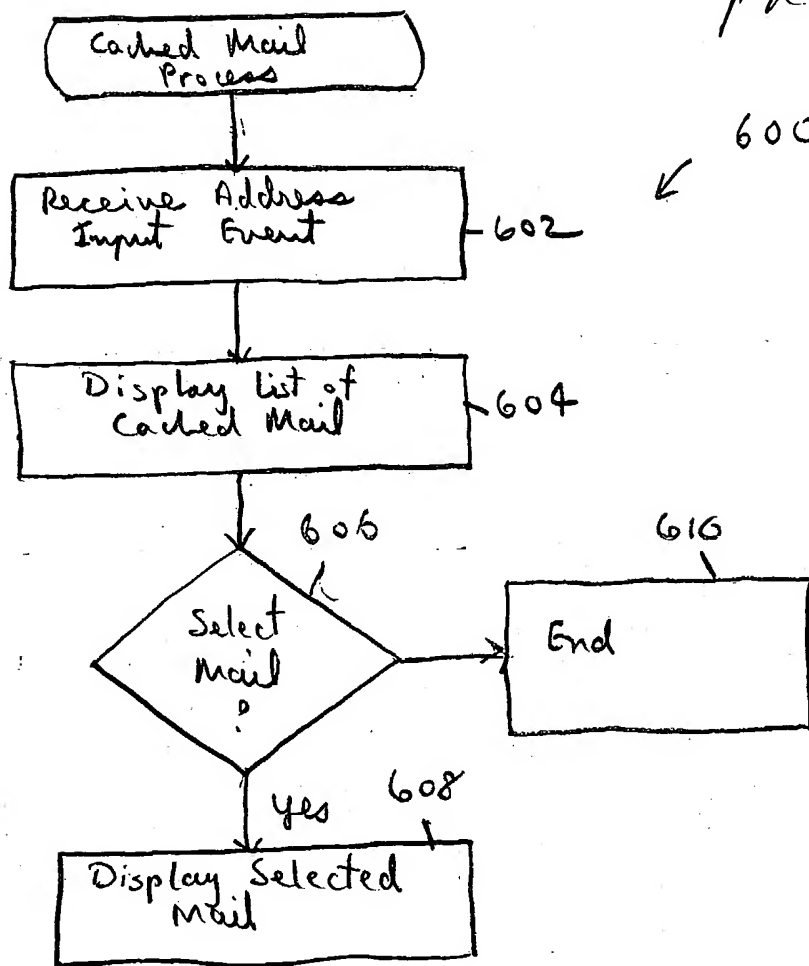 Cached Mail
Process
600
Receive Address
Input Event
602
Display List of
Cached Mail
604
606
610
Select
Mail
?
End
yes
608
Display Selected
Mail